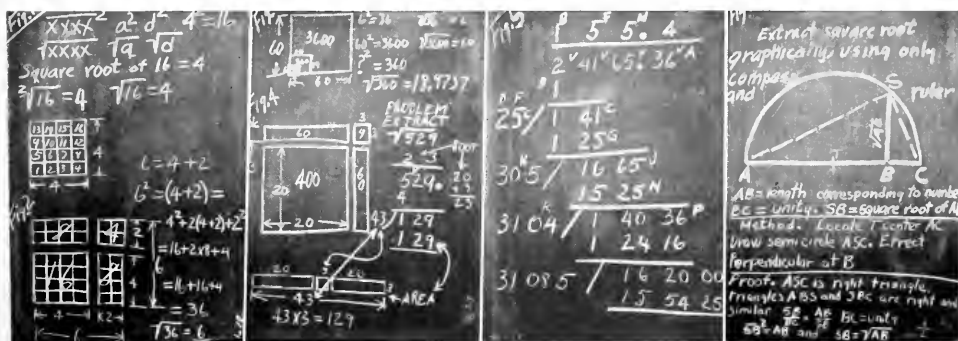 Square root of 16 = 4
²√16 = 4 √16 = 4
13 14 15 16
9 10 11 12
5 6 7 8
1 2 3 4
4
4
6 = 4 + 2
6² = (4+2) =
4² + 2(4+2) + 2²
= 16 + 2x8 + 4
= 16 + 16 + 4
= 36
√36 = 6
60
3600
60
60² = 3600
√3600 = 60
?² = 360
√360 = 18.9737
Fig. 4
PROBLEM
EXTRACT
√529
ROOT
2 3
20
+ 3
529.
4
43/129
129
60
3
9
400
20
20
60
20
20
3
43
AREA
43x3 = 129
1 5 5. 4
2 41 65. 36
1
25/1 41
1 25
305/16 65
15 25
3104/1 40 36
1 24 16
31085/16 20 00
15 54 25
Extract square root
graphically, using only
compass
and ruler
S
A
B
C
AB = length corresponding to number
BC = unity. SB = square root of
Method. Locate T center AC
Draw semicircle ASC. Errect
Perpendicular at B
Proof. ASC is right triangle.
Triangles ABS and SBC are right and
similar SB/BC = AB/SB BC = unity
SB² = AB and SB = √AB